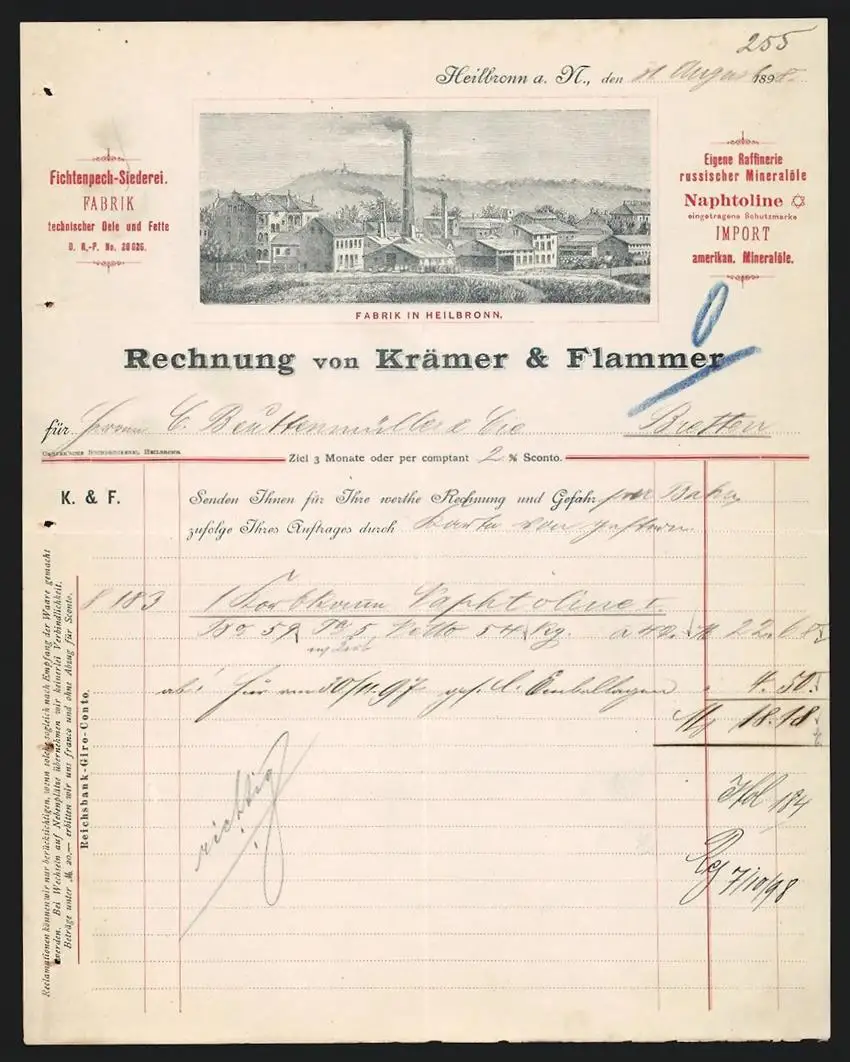 255
Heilbronn a. N., den 31 August 1898.
Fichtenpech-Siederei.
FABRIK
technischer Oele und Fette
D. R.-P. No. 20026.
Eigene Raffinerie
russischer Mineralöle
Naphtoline
eingetragene Schutzmarke
IMPORT
amerikan. Mineralöle.
FABRIK IN HEILBRONN.
Rechnung von Krämer & Flammer
für Herren C. Beuttenmüller & Cie Bretten
Ziel 3 Monate oder per comptant 2 % Sconto.
K. & F.
Senden Ihnen für Ihre werthe Rechnung und Gefahr per Bahn
zufolge Ihres Auftrages durch Karte von gestern
8183 1 Korbkanne Naphtoline I.
Bo. 59, Ta 5, Netto 54 Kg. a 42. M 22.68
ab: für vom 30/11.97 Emballagen " 4.50.
M 18.18
richtig
184
7/10/98
Reclamationen können wir nur berücksichtigen, wenn solche sogleich nach Empfang der Waare gemacht
werden. Bei Wechseln auf Nebenplätze übernehmen wir keinerlei Verbindlichkeit.
Beträge unter M. 20.— erbitten wir uns franco und ohne Abzug für Sconto.
Reichsbank-Giro-Conto.